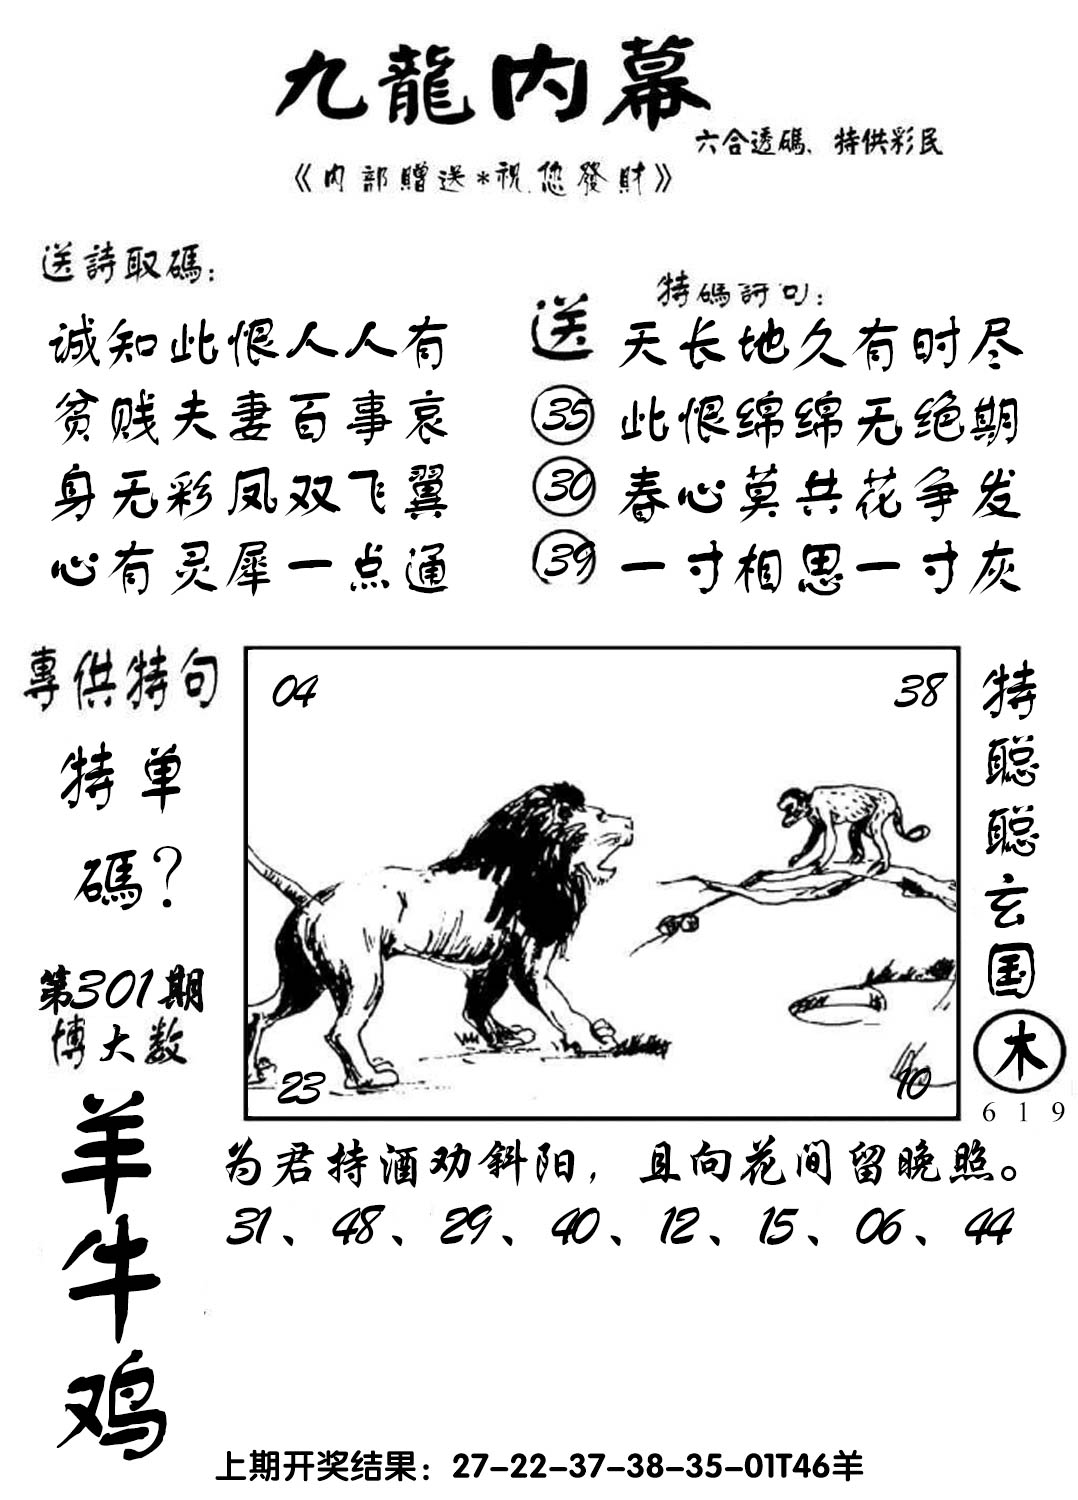 九龍内幕
六合透碼、特供彩民
《内部贈送*祝您發財》
送詩取碼：
诚知此恨人人有
贫贱夫妻百事哀
身无彩凤双飞翼
心有灵犀一点通
送
35
30
39
特碼詩句：
天长地久有时尽
此恨绵绵无绝期
春心莫共花争发
一寸相思一寸灰
專供特句
特单
碼？
第301期
博大数
羊
牛
鸡
04
38
23
10
特
聪
聪
玄
国
木
619
为君持酒劝斜阳，且向花间留晚照。
31、48、29、40、12、15、06、44
上期开奖结果：27-22-37-38-35-01T46羊